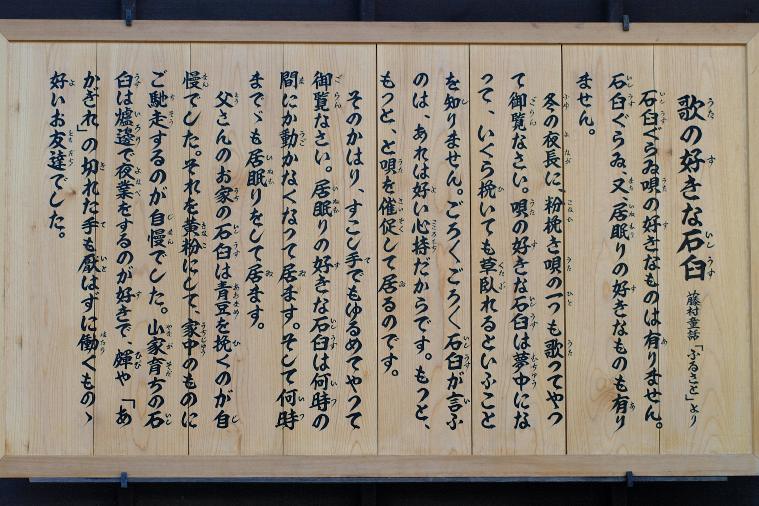 歌の好きな石臼 藤村童話「ふるさと」より
石臼ぐらゐ唄の好きなものは有りません。
石臼ぐらゐ、又、居眠りの好きなものも有り
ません。
冬の夜長に、粉挽き唄の一つも歌つてやつ
て御覧なさい。唄の好きな石臼は夢中にな
つて、いくら挽いても草臥れるといふこと
を知りません。ごろくごろく石臼が言ふ
のは、あれは好い心持だからです。もつと、
もつと、と唄を催促して居るのです。
そのかはり、すこし手でもゆるめてやつて
御覧なさい。居眠りの好きな石臼は何時の
間にか動かなくなつて居ます。そして何時
までゞも居眠りをして居ます。
父さんのお家の石臼は青豆を挽くのが自
慢でした。それを黄粉にして、家中のものに
ご馳走するのが自慢でした。山家育ちの石
臼は爐邊で夜業をするのが好きで、皸や「あ
かぎれ」の切れた手も厭はずに働くものゝ
好いお友達でした。